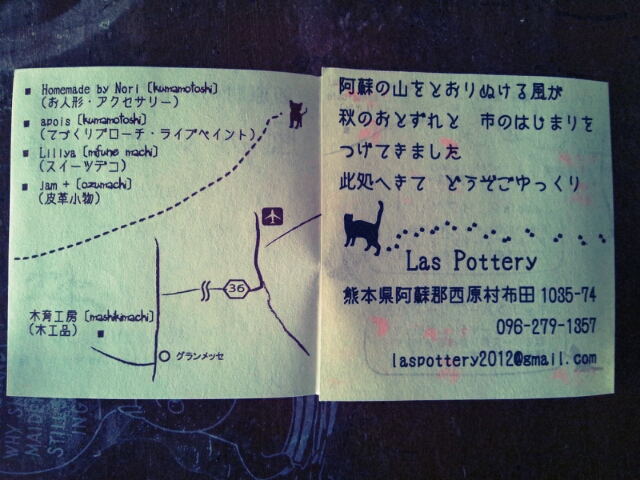 ■ Homemade by Nori [kumamotoshi]
(お人形・アクセサリー)
■ apois [kumamotoshi]
(てづくりブローチ・ライブペイント)
■ Liliya [mifune machi]
(スイーツデコ)
■ jam + [ozumachi]
(皮革小物)
36
木育工房 [mashikimachi]
(木工品) ■
グランメッセ
阿蘇の山をとおりぬける風が
秋のおとずれと 市のはじまりを
つげてきました
此処へきて どうぞごゆっくり
Las Pottery
熊本県阿蘇郡西原村布田 1035-74
096-279-1357
laspottery2012@gmail.com
WHY S
MAIDE
STIL
ING